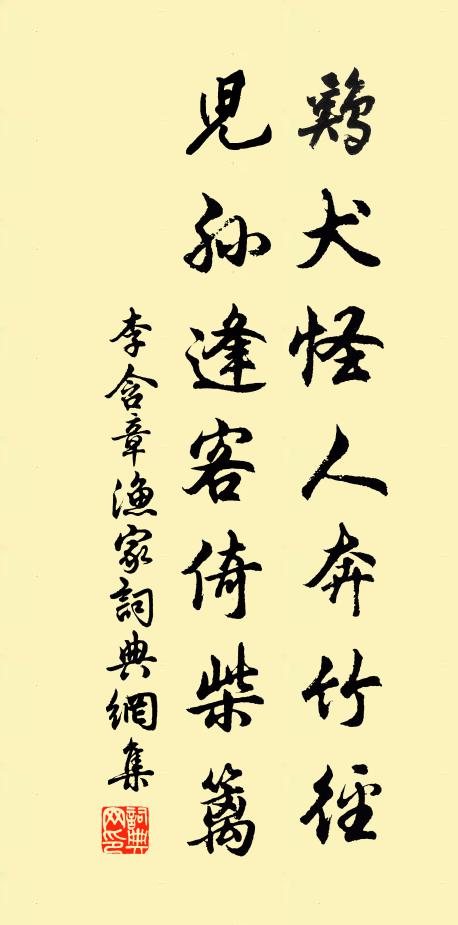 鷄犬怪人奔竹徑
兒孙逢客倚柴籬
李含章漁家詞典網集
詞典网印